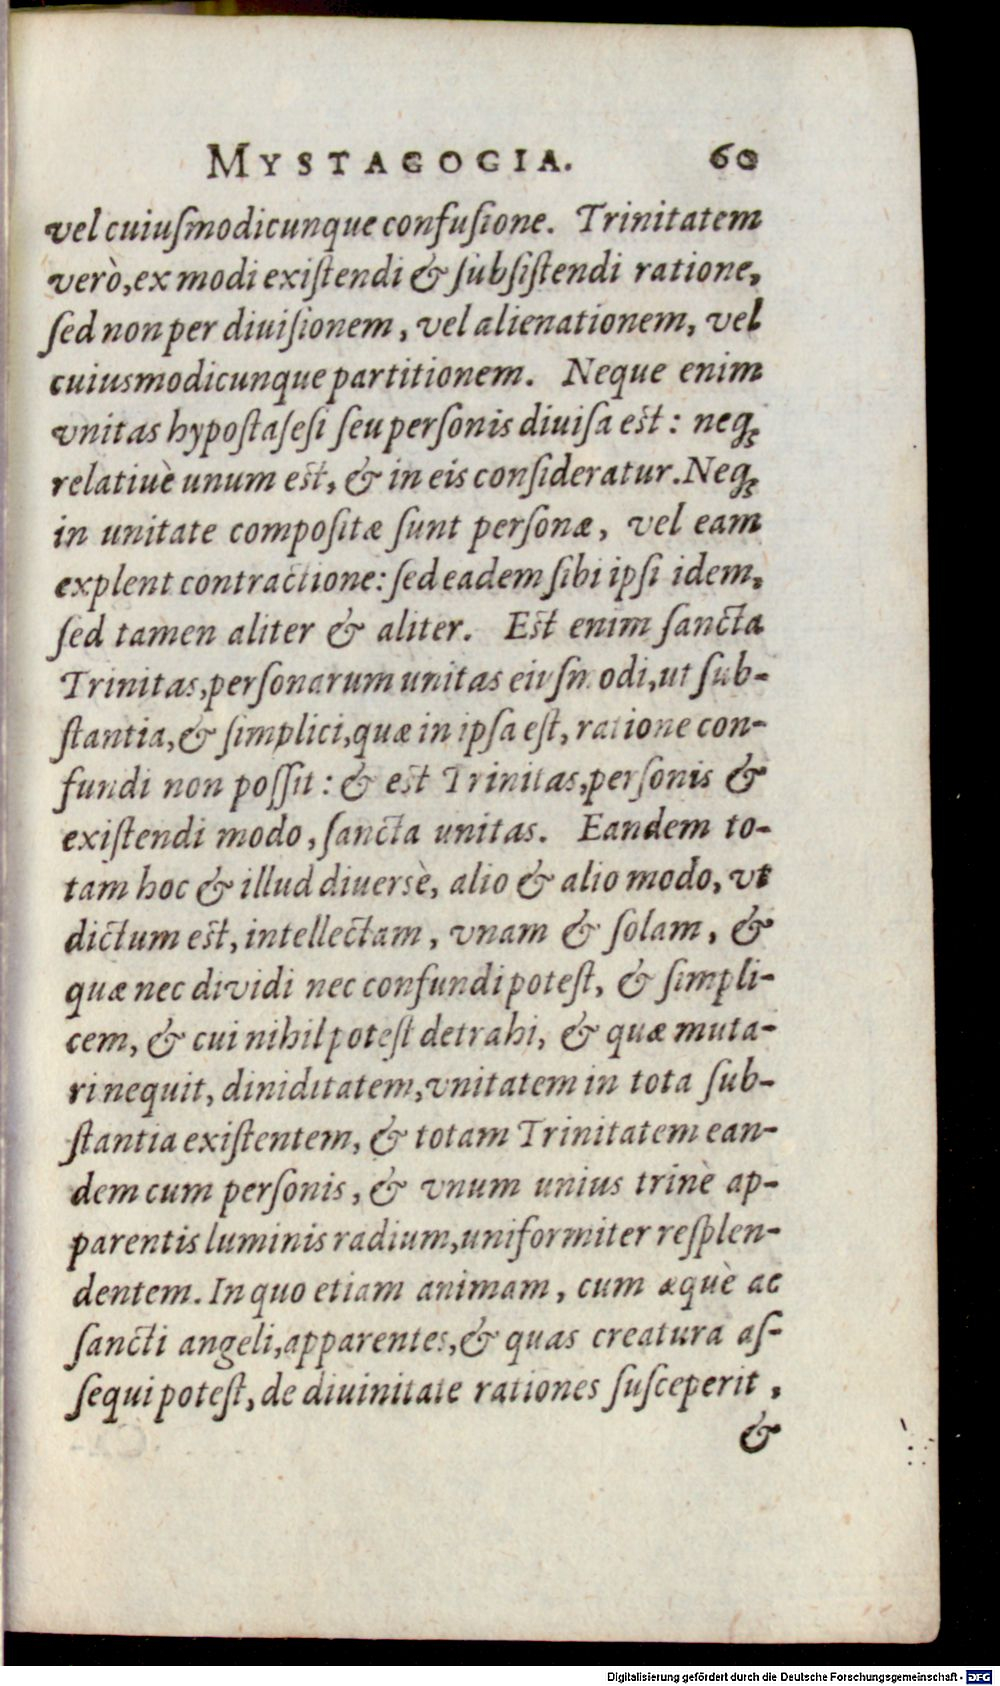 MYSTAGOGIA. 60
vel cuiuſmodicunque confuſione. Trinitatem
verò, ex modi exiſtendi & ſubſiſtendi ratione,
ſed non per diuiſionem, vel alienationem, vel
cuiusmodicunque partitionem. Neque enim
vnitas hypoſtaſeſi ſeu perſonis diuiſa est: neq;
relatiuè unum est, & in eis conſideratur. Neq;
in unitate compoſitæ ſunt perſonæ, vel eam
explent contractione: ſed eadem ſibi ipſi idem,
ſed tamen aliter & aliter. Est enim ſancta
Trinitas, perſonarum unitas eiuſmodi, ut ſub-
ſtantia, & ſimplici, quæ in ipſa eſt, ratione con-
fundi non poſſit: & est Trinitas, perſonis &
exiſtendi modo, ſancta unitas. Eandem to-
tam hoc & illud diuersè, alio & alio modo, vt
dictum est, intellectam, vnam & ſolam, &
quæ nec dividi nec confundi poteſt, & ſimpli-
cem, & cui nihil poteſt detrahi, & quæ muta-
ri nequit, diniditatem, vnitatem in tota ſub-
ſtantia exiſtentem, & totam Trinitatem ean-
dem cum perſonis, & vnum unius trinè ap-
parentis luminis radium, uniformiter reſplen-
dentem. In quo etiam animam, cum æquè ac
ſancti angeli, apparentes, & quas creatura aſ-
ſequi poteſt, de diuinitate rationes ſuſceperit,
&
Digitalisierung gefördert durch die Deutsche Forschungsgemeinschaft - DFG